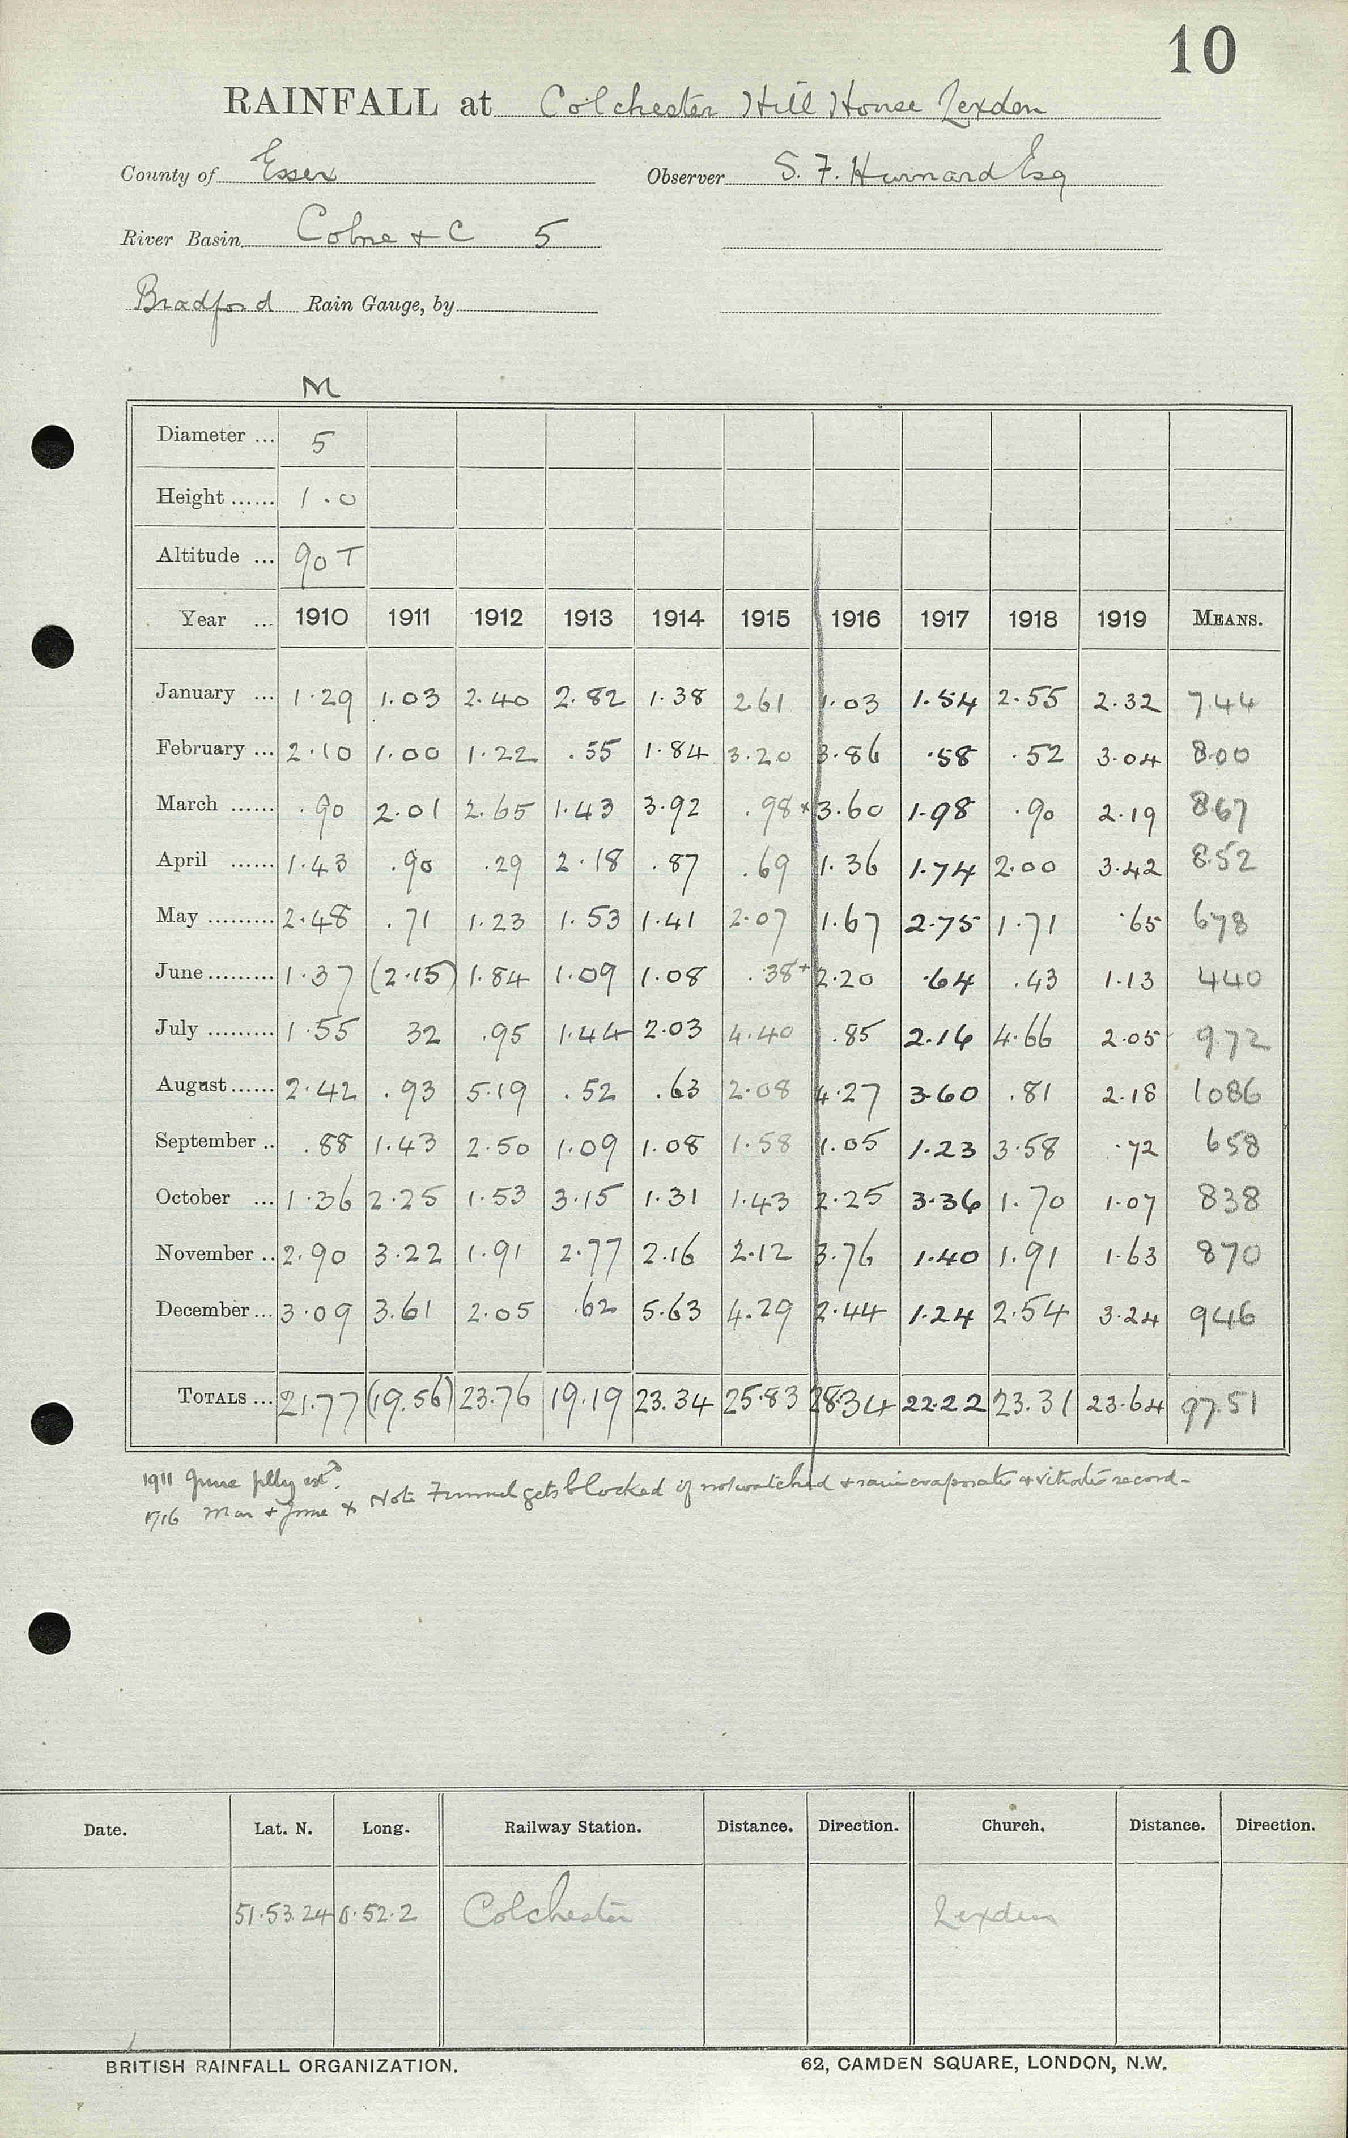 10
RAINFALL at Colchester Hill House Lexden
County of Essex Observer S. F. Hurnard Esq
River Basin Colne + C 5
Bradford Rain Gauge, by
M
Diameter ... 5
Height ...... 1.0
Altitude ... 90 T
Year ... 1910 1911 1912 1913 1914 1915 1916 1917 1918 1919 MEANS.
January ... 1.29 1.03 2.40 2.82 1.38 2.61 1.03 1.54 2.55 2.32 7.44
February ... 2.10 1.00 1.22 .55 1.84 3.20 3.86 .58 .52 3.04 8.00
March ...... .90 2.01 2.65 1.43 3.92 .98 x 3.60 1.98 .90 2.19 867
April ...... 1.43 .90 .29 2.18 .87 .69 1.36 1.74 2.00 3.42 8.52
May ......... 2.48 .71 1.23 1.53 1.41 2.07 1.67 2.75 1.71 .65 678
June ......... 1.37 (2.15) 1.84 1.09 1.08 .38 + 2.20 .64 .43 1.13 440
July ......... 1.55 32 .95 1.44 2.03 4.40 .85 2.16 4.66 2.05 972
August ...... 2.42 .93 5.19 .52 .63 2.08 4.27 3.60 .81 2.18 1086
September .. .88 1.43 2.50 1.09 1.08 1.58 1.05 1.23 3.58 .72 658
October ... 1.36 2.25 1.53 3.15 1.31 1.43 2.25 3.36 1.70 1.07 838
November .. 2.90 3.22 1.91 2.77 2.16 2.12 3.76 1.40 1.91 1.63 870
December ... 3.09 3.61 2.05 .62 5.63 4.29 2.44 1.24 2.54 3.24 946
TOTALS ... 21.77 (19.56) 23.76 19.19 23.34 25.83 28.34 22.22 23.31 23.64 97.51
1911 June ptly estd. Note Funnel gets blocked if not watched + rain evaporates + vitiates record -
Mar + June x
Date. Lat. N. Long. Railway Station. Distance. Direction. Church. Distance. Direction.
51.53.24 0.52.2 Colchester Lexden
BRITISH RAINFALL ORGANIZATION. 62, CAMDEN SQUARE, LONDON, N.W.